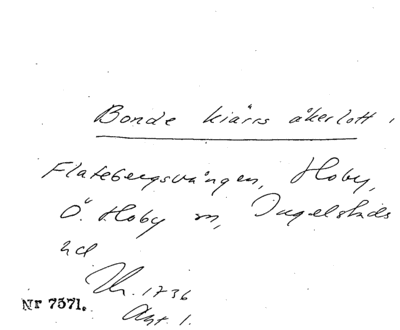 Bonde kiärrs åkerlott,
Flatebergsvången, Hoby,
Ö. Hoby sn, Ingelstads
hd
Nr 7571.
1736
Akt. 1.